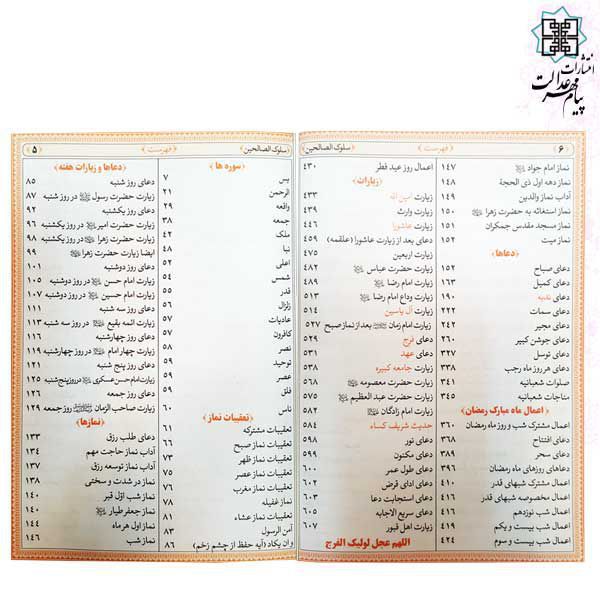 انتشارات
پیام مهر عدالت
﴿۵﴾ ﴿فهرست﴾ ﴿سلوک الصالحین﴾
﴿سوره ها﴾
یس ۷
الرحمن ۲۱
واقعه ۲۹
جمعه ۳۸
ملک ۴۲
نبا ۴۸
اعلی ۵۲
شمس ۵۴
قدر ۵۵
زلزال ۵۶
عادیات ۵۷
کافرون ۵۷
نصر ۵۸
توحید ۵۹
عصر ۵۹
فلق ۵۹
ناس ۶۰
﴿تعقیبات نماز﴾
تعقیبات مشترکه ۶۱
تعقیبات نماز صبح ۶۶
تعقیبات نماز ظهر ۷۳
تعقیبات نماز عصر ۷۵
تعقیبات نماز مغرب ۷۶
نماز غفیله ۷۸
تعقیبات نماز عشاء ۸۱
آمن الرسول ۸۳
و ان یکاد (آیه حفظ از چشم زخم) ۸۶
﴿دعاها و زیارات هفته﴾
دعای روز شنبه ۸۵
زیارت حضرت رسول ﷺ در روز شنبه ۸۷
دعای روز یکشنبه ۹۲
زیارت حضرت امیر در روز یکشنبه ۹۶
زیارت حضرت زهرا در روز یکشنبه ۹۸
ایضا زیارت حضرت زهرا ۹۹
دعای روز دوشنبه ۱۰۱
زیارت امام حسن در روز دوشنبه ۱۰۵
زیارت امام حسین در روز دوشنبه ۱۰۷
دعای روز سه شنبه ۱۱۱
زیارت ائمه بقیع در روز سه شنبه ۱۱۳
دعای روز چهارشنبه ۱۱۶
زیارت چهار امام در روز چهارشنبه ۱۱۹
دعای روز پنج شنبه ۱۲۱
زیارت امام حسن عسکری در روز پنج شنبه ۱۲۵
دعای روز جمعه ۱۲۶
زیارت صاحب الزمان روز جمعه ۱۲۹
﴿نمازها﴾
دعای طلب رزق ۱۳۳
آداب نماز حاجت مهم ۱۳۴
آداب نماز توسعه رزق ۱۳۷
نماز در شدت و سختی ۱۳۸
نماز شب اوّل قبر ۱۴۰
نماز جعفر طیار ۱۴۰
نماز اول هر ماه ۱۴۴
نماز شب ۱۴۶
﴿۶﴾ ﴿فهرست﴾ ﴿سلوک الصالحین﴾
نماز امام جواد ۱۴۷
نماز دهه اول ذی الحجة ۱۴۸
آداب نماز والدین ۱۴۹
نماز استغاثه به حضرت زهرا ۱۵۰
نماز مسجد مقدس جمکران ۱۵۱
نماز میت ۱۵۲
﴿دعاها﴾
دعای صباح ۱۵۲
دعای کمیل ۱۶۳
دعای ندبه ۱۹۰
دعای سمات ۲۲۲
دعای مجیر ۲۴۲
دعای جوشن کبیر ۲۶۰
دعای توسل ۳۲۷
دعای هر روز ماه رجب ۳۳۸
صلوات شعبانیه ۳۴۱
مناجات شعبانیه ۳۴۵
﴿اعمال ماه مبارک رمضان﴾
اعمال مشترک شب و روز ماه رمضان ۳۶۰
دعای افتتاح ۳۶۸
دعای سحر ۳۸۹
دعاهای روزهای ماه رمضان ۳۹۶
اعمال مشترک شبهای قدر ۴۱۰
اعمال مخصوصه شبهای قدر ۴۱۶
اعمال شب نوزدهم ۴۱۶
اعمال شب بیست و یکم ۴۱۹
اعمال شب بیست و سوم ۴۲۴
اعمال روز عید فطر ۴۳۰
﴿زیارات﴾
زیارت امین الله ۴۳۳
زیارت وارث ۴۳۹
زیارت عاشورا ۴۴۶
دعای بعد از زیارت عاشورا (علقمه) ۴۵۹
زیارت اربعین ۴۷۵
زیارت حضرت عباس ۴۸۲
زیارت امام رضا ۴۸۹
زیارت وداع امام رضا ۵۱۳
زیارت آل یاسین ۵۱۴
زیارت امام زمان بعد از نماز صبح ۵۲۷
دعای فرج ۵۲۹
دعای عهد ۵۳۱
زیارت جامعه کبیره ۵۳۸
زیارت حضرت معصومه ۵۶۸
زیارت حضرت عبد العظیم ۵۷۵
زیارت امام زادگان ۵۸۲
حدیث شریف کساء ۵۸۴
دعای نور ۵۹۸
دعای مکنون ۵۹۹
دعای طول عمر ۶۰۰
دعای ادای قرض ۶۰۲
دعای استجابت دعا ۶۰۳
دعای سریع الاجابه ۶۰۵
زیارت اهل قبور ۶۰۷
اللهم عجل لولیک الفرج